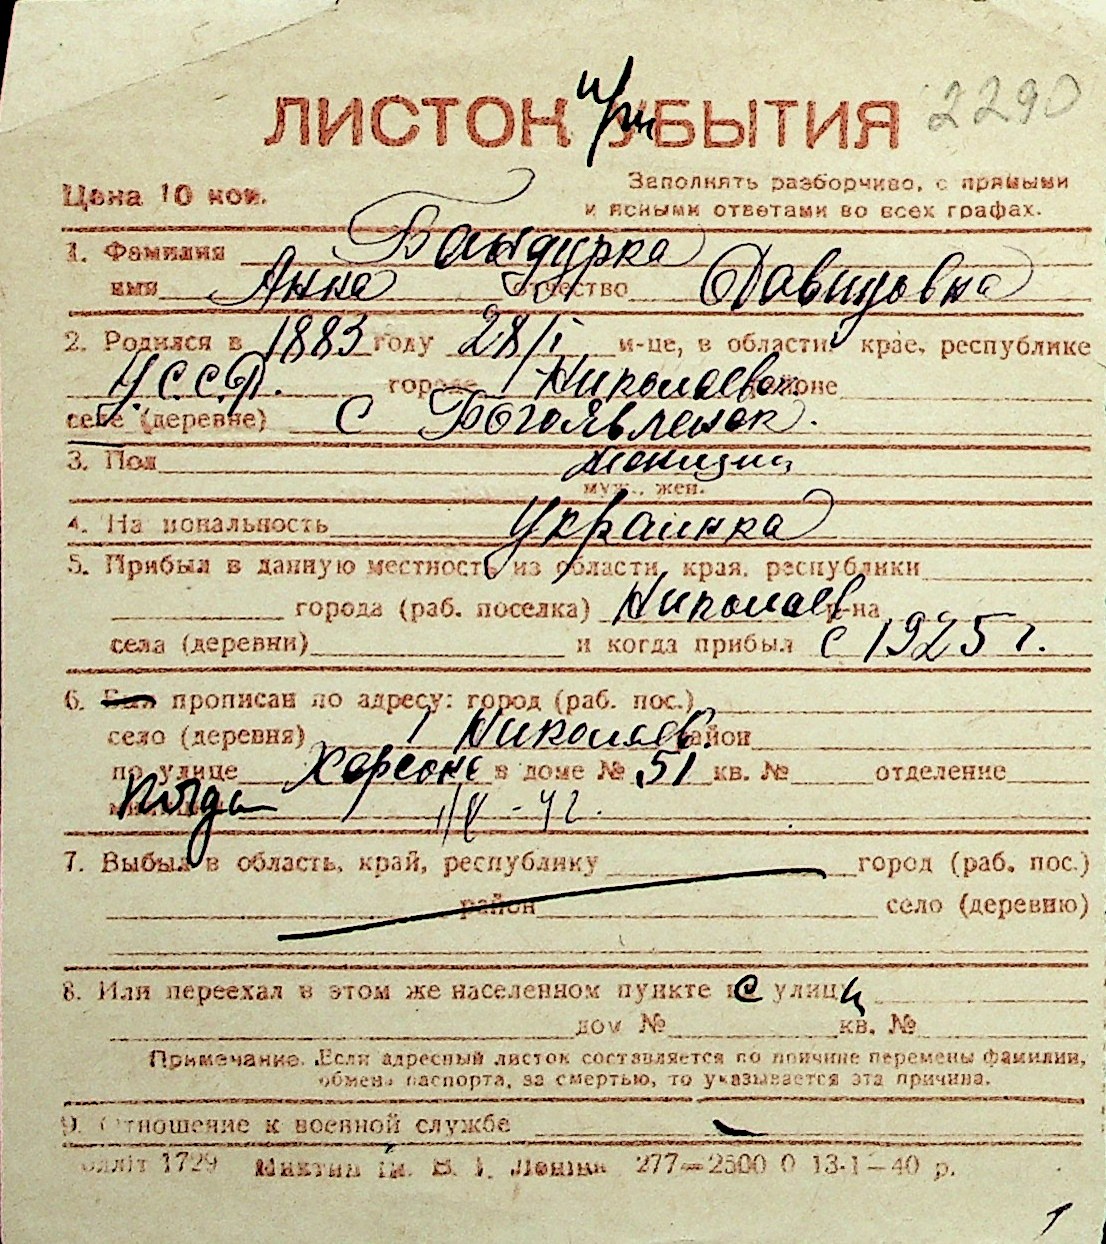 ЛИСТОК УБЫТИЯ 2290
при
Цена 10 коп.
Заполнять разборчиво, с прямыми
и ясными ответами во всех графах.
1. Фамилия Бандурка
имя Анна отчество Давидовна
2. Родился в 1883 году 28/I м-це, в области, крае, республике
У.С.С.Р. городе г Николаевск. районе
селе (деревне) с Богоявленск.
3. Пол женщина
муж., жен.
4. Национальность Украинка
5. Прибыл в данную местность из области, края, республики
города (раб. поселка) Николаев р-на
села (деревни) и когда прибыл с 1925 г.
6. Был прописан по адресу: город (раб. пос.)
село (деревня) г Николаев. район
по улице Херсонс в доме № 51 кв. № отделение
милиции
7. Выбыл в область, край, республику город (раб. пос.)
район село (деревню)
8. Или переехал в этом же населенном пункте с улиц
дом № кв. №
Примечание. Если адресный листок составляется по причине перемены фамилии,
обмена паспорта, за смертью, то указывается эта причина.
9. Отношение к военной службе —
1729 ім. В. І. Леніна 277—2500 0 13-1—40 р.
1